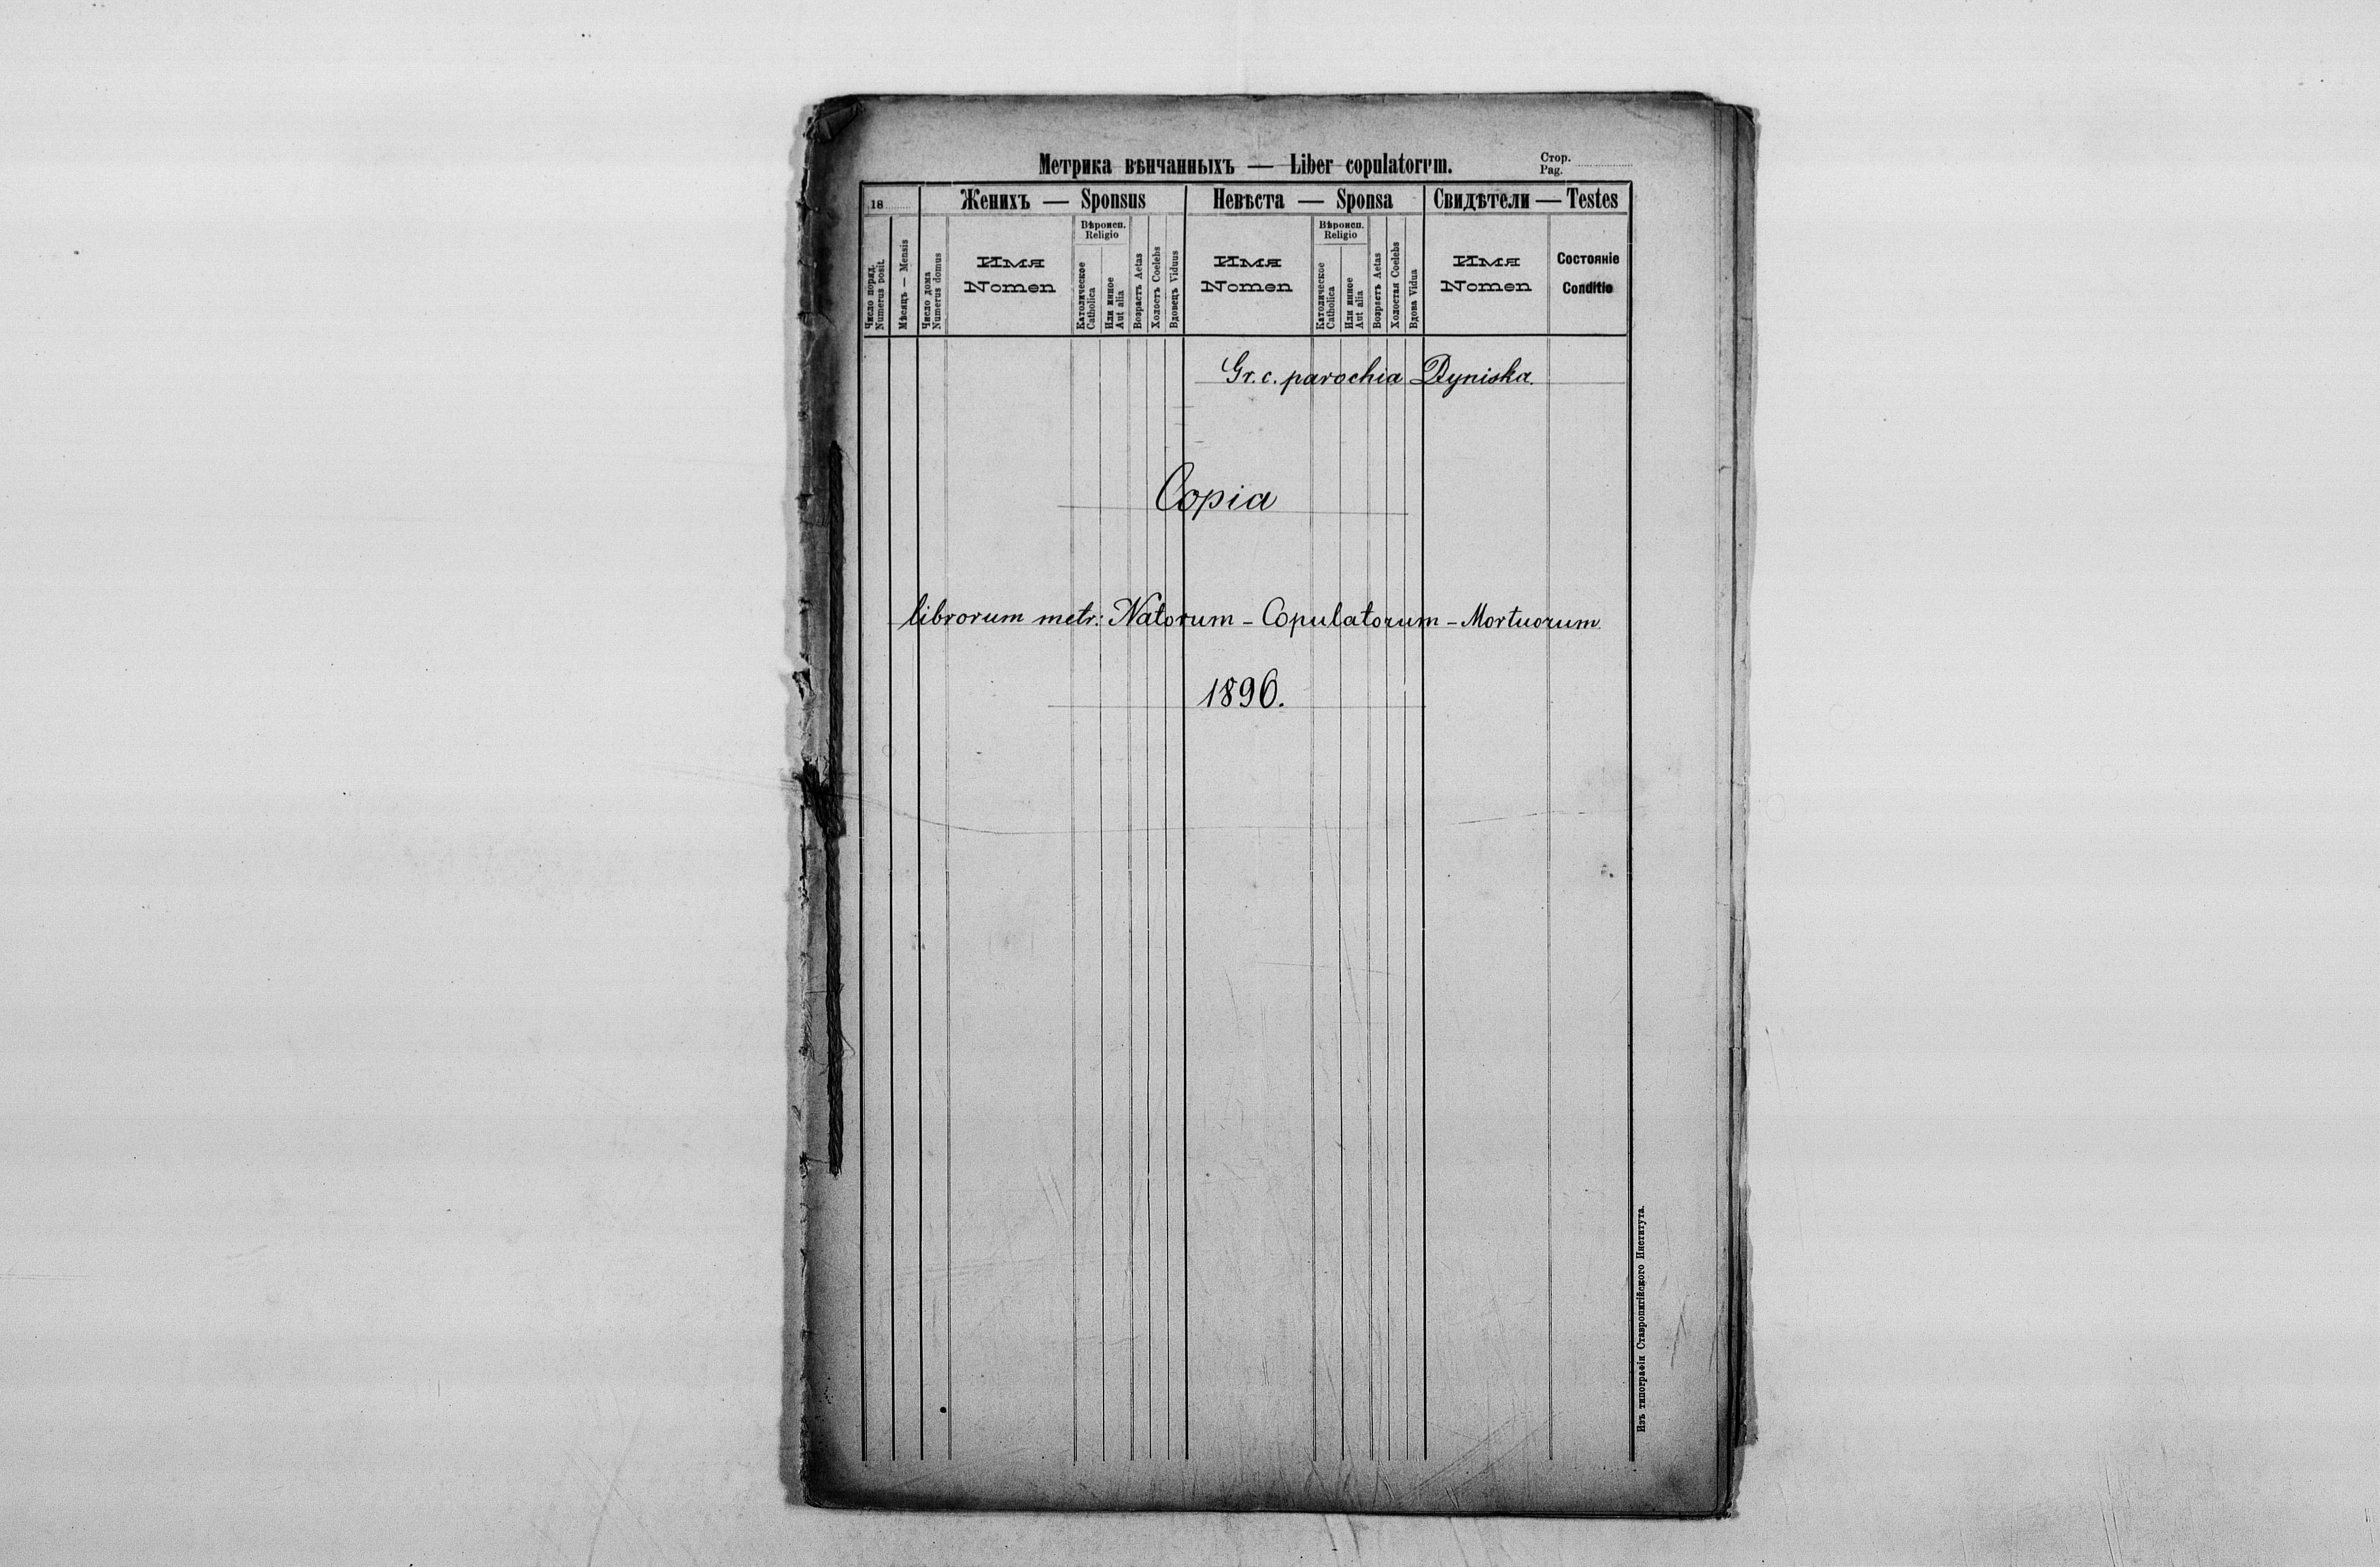 Метрика вѣнчанныхъ — Liber copulatorum.
Стор.
Pag.
18
Женихъ — Sponsus
Невѣста — Sponsa
Свидѣтели — Testes
Число поряд.
Numerus posit.
Мѣсяцъ — Mensis
Число дома
Numerus domus
Имя
Nomen
Вѣроисп.
Religio
Католическое
Catholica
Или инное
Aut alia
Возрастъ Aetas
Холостъ Coelebs
Вдовецъ Viduus
Имя
Nomen
Вѣроисп.
Religio
Католическое
Catholica
Или инное
Aut alia
Возрастъ Aetas
Холостая Coelebs
Вдова Vidua
Имя
Nomen
Состояніе
Conditio
Gr. c. parochia Dyniska.
Copia
librorum metr: Natorum - Copulatorum - Mortuorum
1896.
Изъ типографіи Ставропигійского Института.